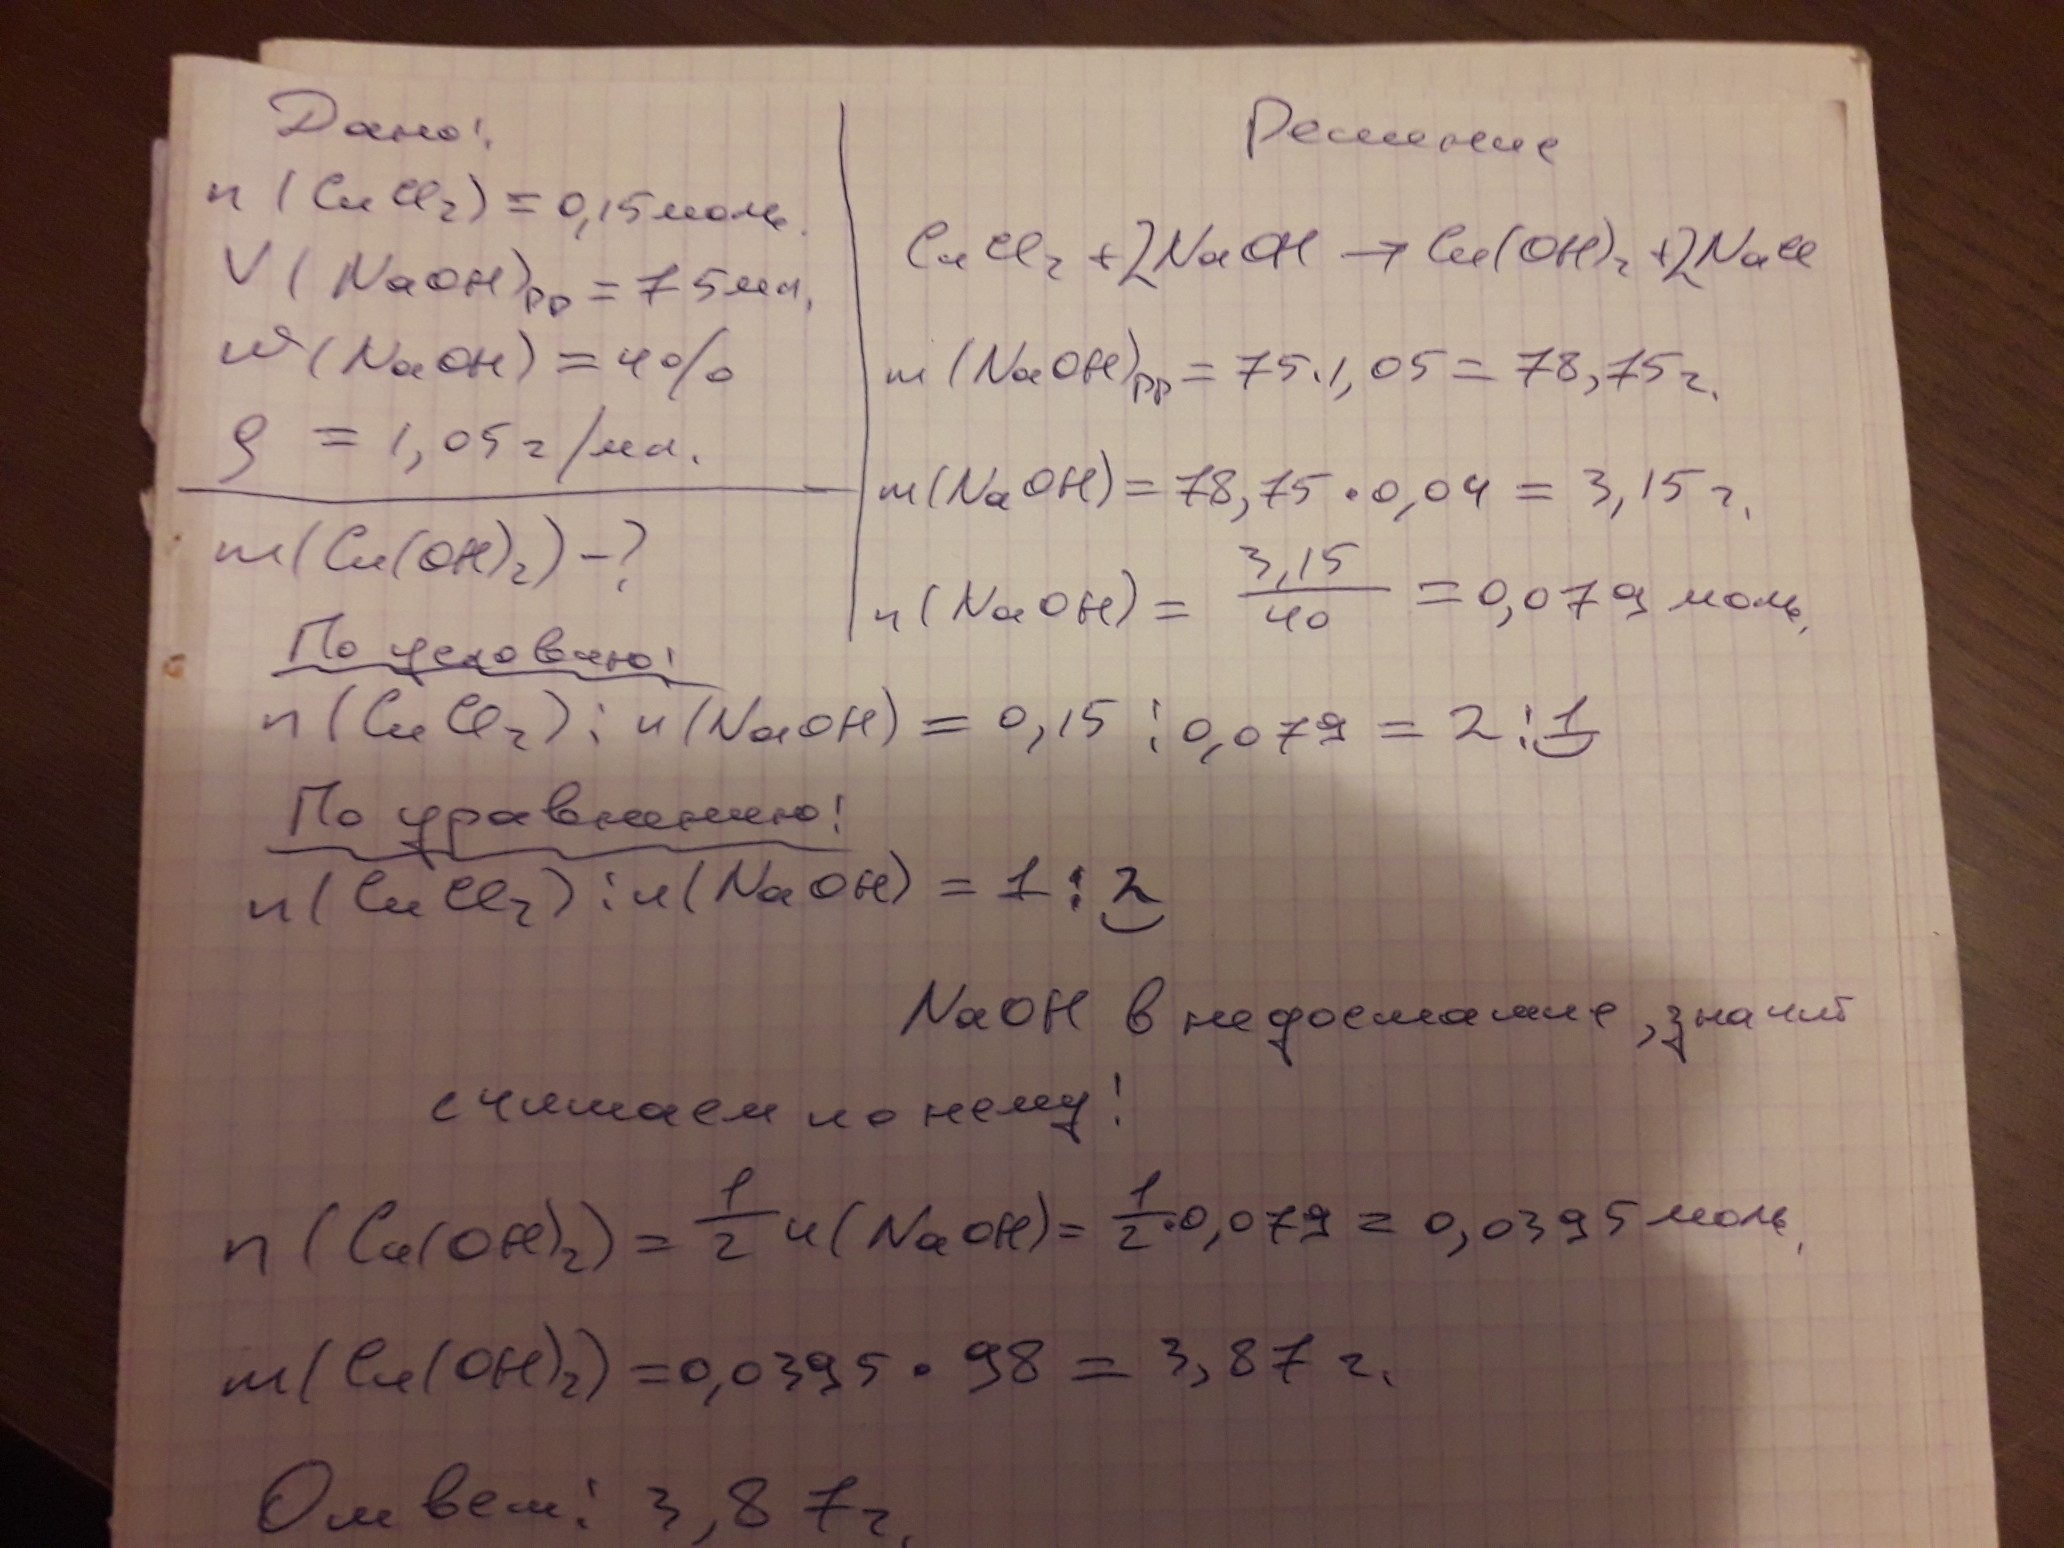 Дано:
n(CuCl₂) = 0,15 моль.
V(NaOH)рр = 75 мл.
w(NaOH) = 4%
ρ = 1,05 г/мл.
m(Cu(OH)₂) - ?
Решение
CuCl₂ + 2NaOH → Cu(OH)₂ + 2NaCl
m(NaOH)рр = 75·1,05 = 78,75 г.
m(NaOH) = 78,75 · 0,04 = 3,15 г.
n(NaOH) = 3,15/40 = 0,079 моль.
По условию:
n(CuCl₂) : n(NaOH) = 0,15 : 0,079 = 2 : 1
По уравнению:
n(CuCl₂) : n(NaOH) = 1 : 2
NaOH в недостатке, значит
считаем по нему!
n(Cu(OH)₂) = 1/2 n(NaOH) = 1/2·0,079 = 0,0395 моль.
m(Cu(OH)₂) = 0,0395 · 98 = 3,87 г.
Ответ: 3,87 г.